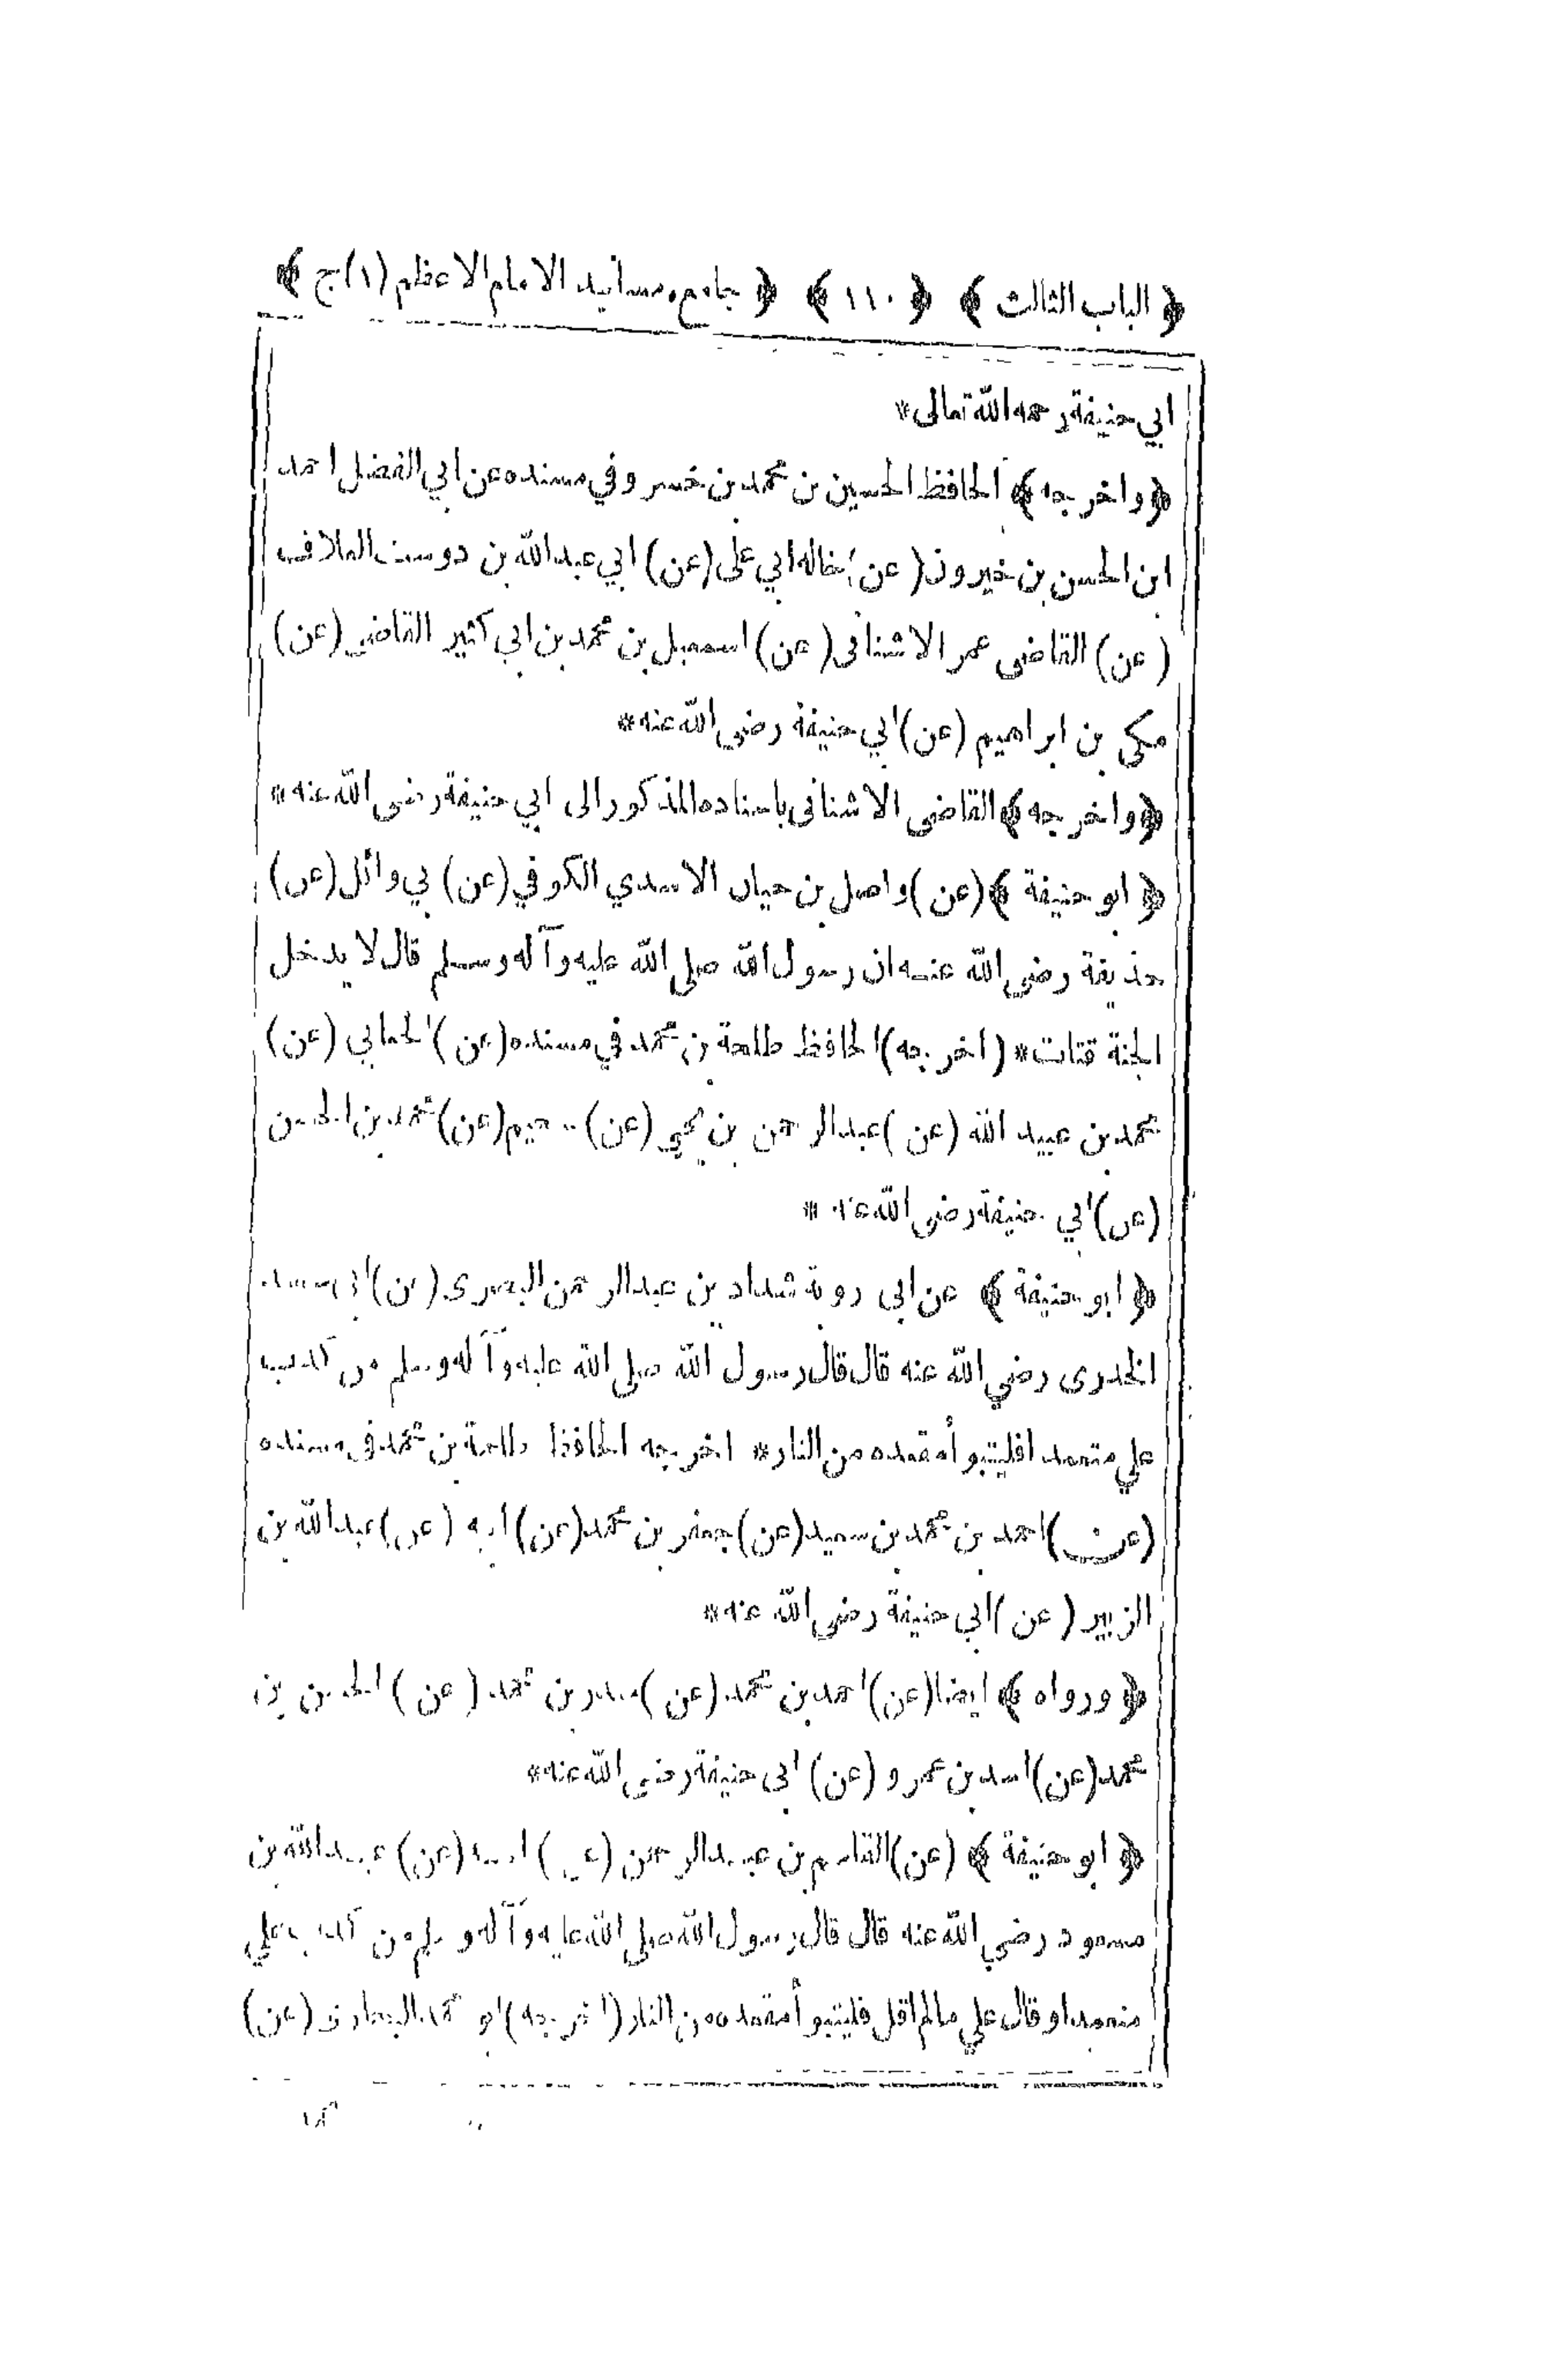 ﴿ الباب الثالث ﴾ ﴿ ١١٠ ﴾ ﴿ جامع مسانيد الامام الاعظم (١) ج ﴾
ابي حنيفة رحمه الله تعالى *
﴿ واخرجه ﴾ الحافظ الحسين بن محمد بن خسرو في مسنده عن ابي الفضل احمد
ابن الحسن بن خيرون (عن) خاله ابي على (عن) ابي عبد الله بن دوست العلاف
(عن) القاضى عمر الاشنانى (عن) اسمعيل بن محمد بن ابي كثير القاضى (عن)
مكى بن ابراهيم (عن) ابي حنيفة رضي الله عنه *
﴿ واخرجه ﴾ القاضى الاشنانى باسناده المذكور الى ابي حنيفة رضى الله عنه *
﴿ ابو حنيفة ﴾ (عن) واصل بن حيان الاسدي الكوفي (عن) بي وائل (عن)
حذيفة رضى الله عنه ان رسول الله صلى الله عليه وآله وسلم قال لا يدخل
الجنة قتات * (اخرجه) الحافظ طلحة بن محمد في مسنده (عن) الحماني (عن)
محمد بن عبيد الله (عن) عبد الرحمن بن يحيى (عن) محمد بن الحسن
(عن) ابي حنيفة رضى الله عنه *
﴿ ابو حنيفة ﴾ عن ابى روبة شداد بن عبد الرحمن البصرى (عن) ابى سعيد
الخدرى رضي الله عنه قال قال رسول الله صلى الله عليه وآله وسلم من كذب
علي متعمدا فليتبوأ مقعده من النار * اخرجه الحافظ طلحة بن محمد فى مسنده
(عن) احمد بن محمد بن سعيد (عن) جعفر بن محمد (عن) ابيه (عن) عبد الله بن
الزبير (عن) ابي حنيفة رضى الله عنه *
﴿ ورواه ﴾ ايضا (عن) احمد بن محمد (عن) بن محمد (عن) الحسن بن
محمد (عن) اسد بن عمرو (عن) ابى حنيفة رضي الله عنه *
﴿ ابو حنيفة ﴾ (عن) القاسم بن عبد الرحمن (عن) ابيه (عن) عبد الله بن
مسعود رضي الله عنه قال قال رسول الله صلى الله عليه وآله وسلم من كذب علي
متعمدا او قال علي مالم اقل فليتبوأ مقعده من النار (اخرجه) ابو محمد البخارى (عن)